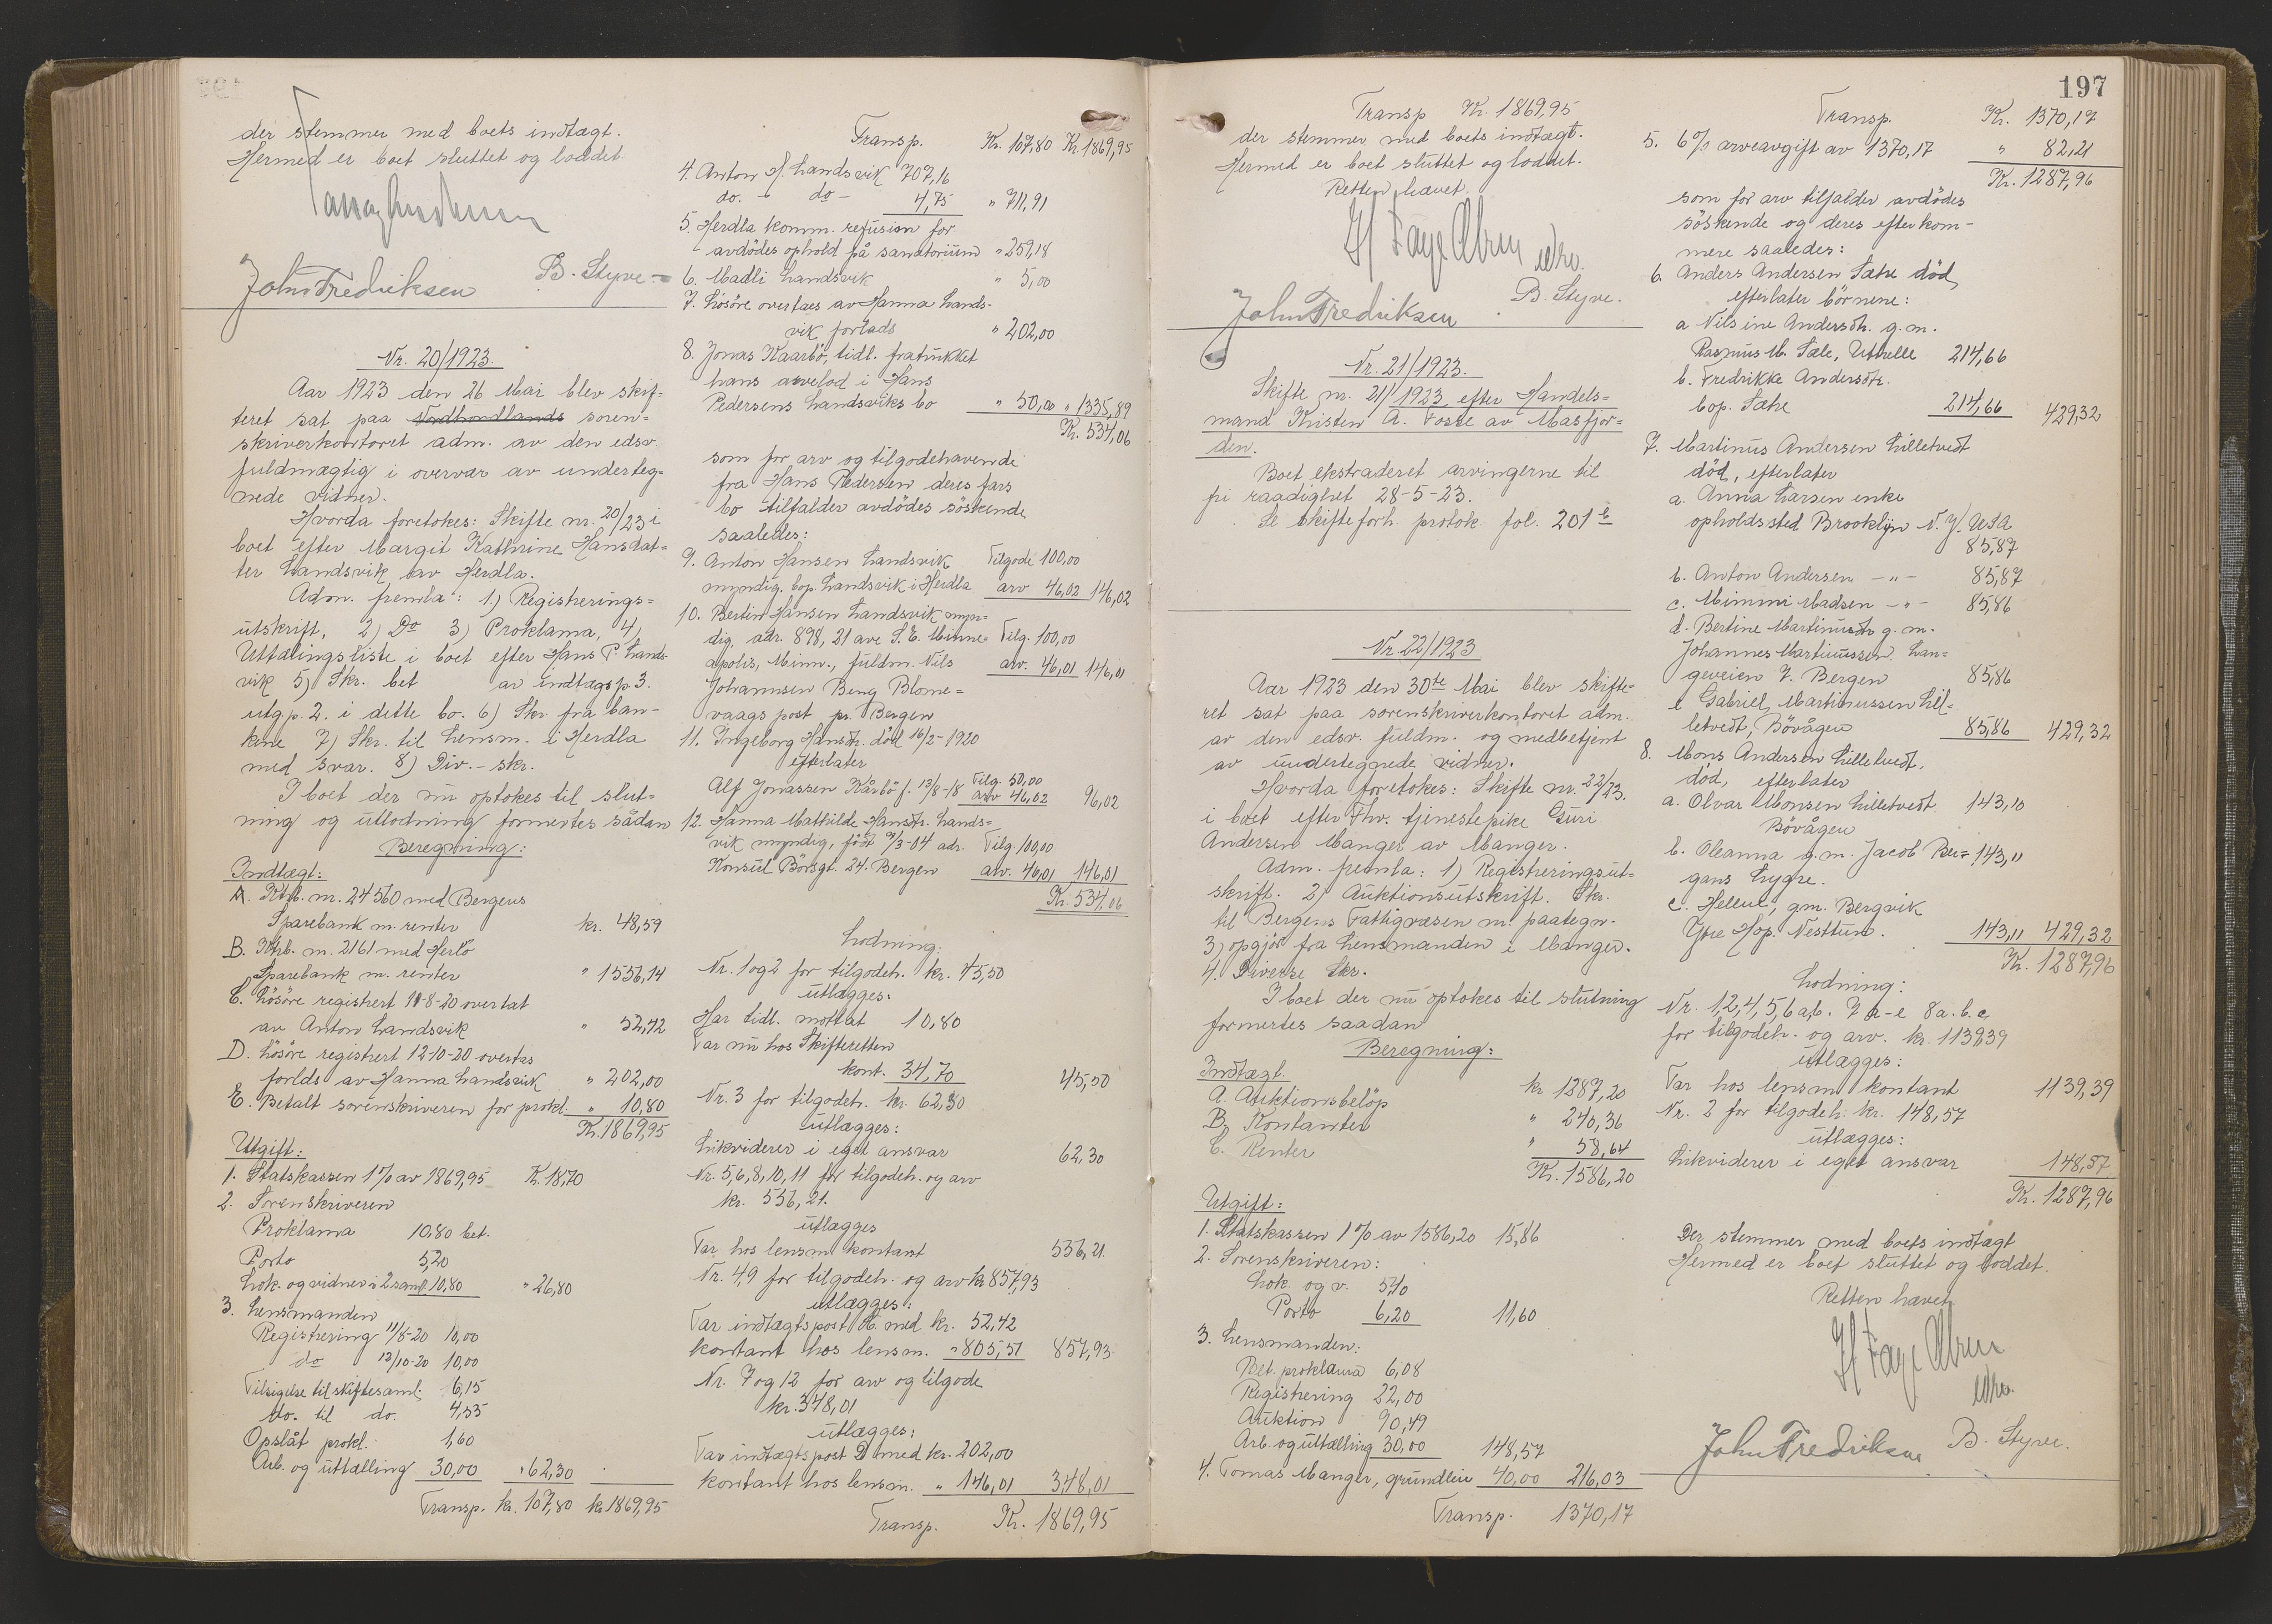 der stemmer med boets indtægt.
Hermed er boet sluttet og loddet.
John Fredriksen B. Styve.
Nr. 20/1923.
Aar 1923 den 26 Mai blev skif-
teret sat paa Nordhordlands soren-
skriverkontoret adm. av den edsv.
fuldmægtig i overvær av underteg-
nede vidner.
Hvorda foretokes: Skifte nr. 20/23 i
boet efter Margit Kathrine Hansdat-
ter Landsvik av Herdla.
Adm. fremla: 1.) Registrerings-
utskrift, 2) Do 3) Proklama, 4)
Uttælingsliste i boet efter Hans P. Lands-
vik 5) Skr. bet av indtægsp. 3.
utg p. 2. i dette bo. 6) Skr. fra ban-
kene 7) Skr. til Lensm. i Herdla
med svar. 8) Div. - skr.
I boet der nu optokes til slut-
ning og utlodning formertes sådan
Beregning:
Indtægt:
A. Ktrb. nr. 24560 med Bergens
Sparebank m. renter kr. 48,59
B. Ktrb. nr. 2161 med Herlö
Sparebank m. renter " 1556,14
C. Lösöre registrert 11-8-20 overtat
av Anton Landsvik " 52,42
D. Lösöre registrert 12-10-20 overtas
forlds av Hanna Landsvik " 202,00
E. Betalt sorenskriveren for prokl. " 10,80
Kr. 1869,95
Utgift:
1. Statskassen 1% av 1869,95 K. 18,70
2. Sorenskriveren
Proklama 10,80 bet.
Porto 5,20
Lok. og vidner i 2 saml. 10,80 " 26,80
3. Lensmanden
Registrering 11/8-20 10,00
do 12/10-20 10,00
Tilsigelse til skiftesaml. 6,15
do. til do. 4,55
Opslåt prokl. 1,60
Arb. og uttælling 30,00 " 62,30
Transp. kr. 107,80 kr. 1869,95
Transp. Kr. 107,80 Kr. 1869,95
4. Anton H. Landsvik 707,16
do. - do - 4,75 " 711,91
5. Herdla komm. refusion for
avdödes ophold på sanatorium " 259,18
6. Madli Landsvik " 5,00
7. Lösöre overtaes av Hanna Lands-
vik forlads " 202,00
8. Jonas Kaarbö, tidl. fratrukket
hans arvelod i Hans
Pedersens Landsviks bo " 50,00 " 1335,89
Kr. 534,06
som for arv og tilgodehavende
fra Hans Pedersen deres fars
bo tilfalder avdödes söskende
saaledes:
9. Anton Hansen Landsvik Tilgode 100,00
myndig. bop. Landsvik i Herdla arv 46,02 146,02
10. Bertin Hansen Landsvik myn-
dig, adr. 898, 21 ave S. E. Minne- Tilg. 100,00
apolis, Minn., fuldm. Nils arv. 46,01 146,01
Johannsen Beng Blome-
vaags post pr. Bergen
11. Ingeborg Hansdtr. död 16/2-1920
efterlater
Alf Jonassen Kårbö f. 13/8-18 Tilg. 50,00
arv 46,02 96,02
12. Hanna Mathilde Hansdtr. Lands-
vik myndig, födt 9/3-04 adr. Tilg. 100,00
Konsul Börsgt. 24. Bergen arv. 46,01 146,01
Kr. 534,06
Lodning:
Nr. 1 og 2 for tilgodeh. kr. 45,50
utlægges:
Har tidl. mottat 10,80
Tar nu hos Skifteretten
kont. 34,70 45,50
Nr. 3 for tilgodeh. kr. 62,30
utlægges:
Likviderer i eget ansvar 62,30
Nr. 5, 6, 8, 10, 11 for tilgodeh. og arv
kr. 556,21.
utlægges
Tar hos lensm. kontant 556,21.
Nr. 4, 9 for tilgodeh. og arv kr. 857,93
utlægges:
Tar indtægtspost C. med kr. 52,42
kontant hos lensm. " 805,51 857,93
Nr. 7 og 12 for arv og tilgode
kr. 348,01
utlægges:
Tar indtægtspost D med kr. 202,00
kontant hos lensm. " 146,01 348,01
Transp. Kr. 1869,95
197
Transp Kr. 1869,95
der stemmer med boets indtægt.
Hermed er boet sluttet og loddet.
Retten hævet.
John Fredriksen B. Styve.
Nr. 21/1923.
Skifte nr. 21/1923 efter Handels-
mand Kristen A. Fosse av Masfjor-
den.
Boet ekstraderet arvingerne til
fri raadighet 28-5-23.
Se skifteforh. protok. fol. 201 b
Nr. 22/1923
Aar 1923 den 30te Mai blev skifte-
ret sat paa sorenskriverkontoret adm.
av den edsv. fuldm. og medbetjent
av undertegnede vidner.
Hvorda foretokes: Skifte nr. 22/23.
i boet efter Fhv. tjenestepike Guri
Andersen Manger av Manger.
Adm. fremla: 1) Registreringsut-
skrift. 2) Auktionsutskrift. Skr.
til Bergens Fattigvæsen m. paategn.
3) opgjör fra Lensmanden i Manger.
4. Diverse Skr.
I boet der nu optokes til slutning
formertes saadan
Beregning:
Indtægt.
A. Auktionsbelöp kr 1287,20
B. Kontanter " 240,36
C. Renter " 58,64
Kr. 1586,20
Utgift:
1. Statskassen 1% av 1586,20 15,86
2. Sorenskriveren:
Lok. og v. 5,40
Porto 6,20 11,60
3. Lensmanden:
Bet. proklama 6,08
Registrering 22,00
Auktion 90,49
Arb. og uttælling 30,00 148,57
4. Tomas Manger, grundleie 40,00 216,03
Transp. 1370,17
Transp. Kr. 1370,17
5. 6% arveavgift av 1370,17 " 82,21
Kr. 1287,96
som for arv tilfalder avdödes
söskende og deres efterkom-
mere saaledes:
6. Anders Andersen Sætre död,
efterlater börnene:
a Nilsine Andersdtr. g. m.
Rasmus M. Sæle, Uthelle 214,66
b. Fredrikke Andersdtr.
bop. Sætre 214,66 429,32
7. Martinus Andersen Lilletvedt
död, efterlater
a. Anna Larsen enke
opholdssted Brooklyn N. Y. USA
85,87
b. Anton Andersen - " - 85,87
c. Mimmi Madsen - " - 85,86
d. Bertine Martinusdtr g. m.
Johannes Martinussen. Lan-
geveien 7. Bergen 85,86
e Gabriel Martinussen Lil-
letvedt, Bövågen 85,86 429,32
8. Mons Andersen Lilletvedt,
död, efterlater
a. Olvar Monsen Lilletvedt 143,10
Bövågen
b. Oleanna g. m. Jacob Ber- 143,11
gans Lygre.
c. Helleu, gm. Bergvik
Ytre Hop. Nesttun. 143,11 429,32
Kr. 1287,96
Lodning:
Nr. 1, 2, 4, 5, 6 a, b. 7 a-e 8 a. b. c
for tilgodeh. og arv. kr. 1139,39
utlægges:
Tar hos lensm kontant 1139,39
Nr. 3 for tilgodeh. kr. 148,57
utlægges:
Likviderer i eget ansvar 148,57
Kr. 1287,96
Der stemmer med boets indtægt
Hermed er boet sluttet og loddet.
Retten hævet
John Fredriksen B. Styve.